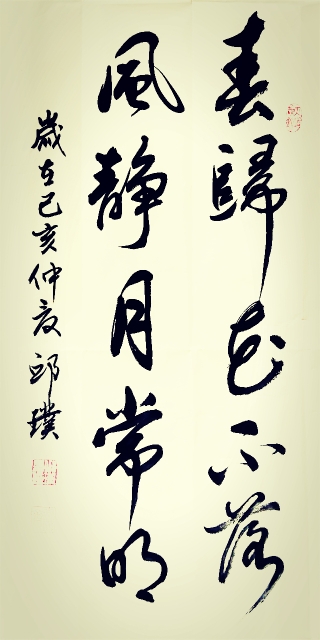 春歸花不落
風靜月常明
歲在己亥仲夏邱璞